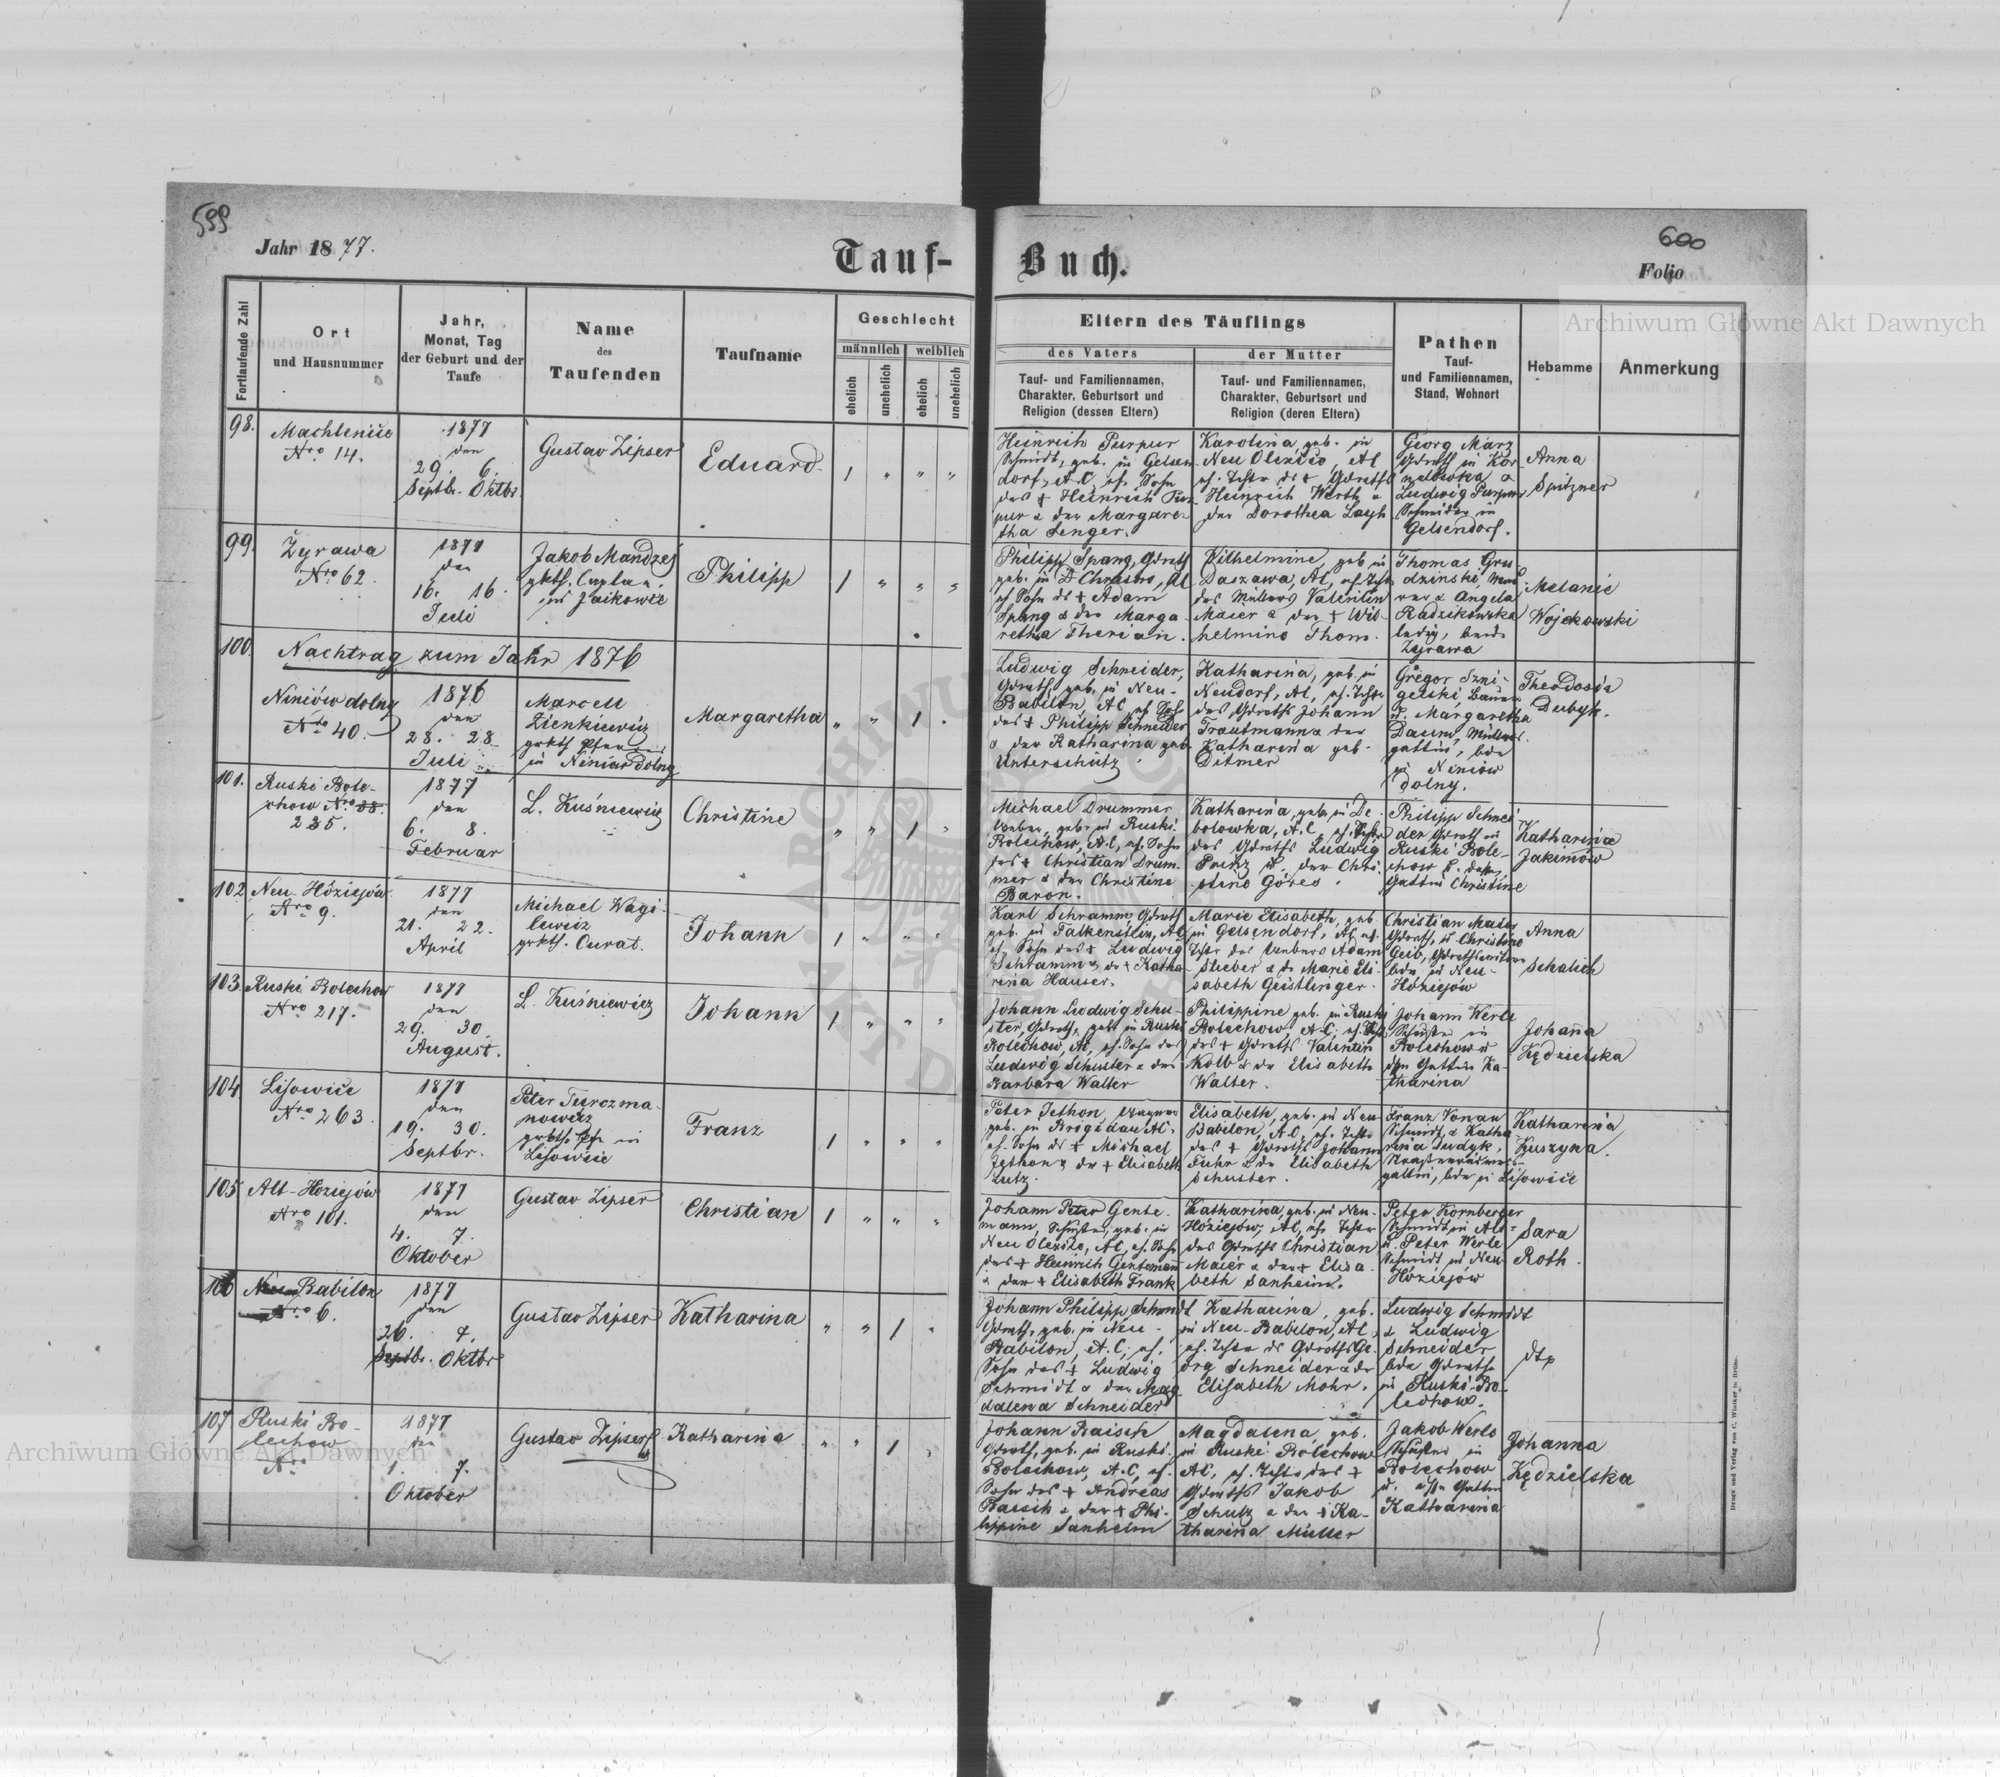 599
Jahr 1877.
Tauf-
Buch.
600
Folio
Archiwum Główne Akt Dawnych
Fortlaufende Zahl
Ort
und Hausnummer
Jahr,
Monat, Tag
der Geburt und der
Taufe
Name
des
Taufenden
Taufname
Geschlecht
männlich
weiblich
ehelich
unehelich
ehelich
unehelich
Eltern des Täuflings
des Vaters
Tauf- und Familiennamen,
Charakter, Geburtsort und
Religion (dessen Eltern)
der Mutter
Tauf- und Familiennamen,
Charakter, Geburtsort und
Religion (deren Eltern)
Pathen
Tauf-
und Familiennamen,
Stand, Wohnort
Hebamme
Anmerkung
98.
Machlenice
Nro 14.
1877
den
29. 6.
Septbr. Oktbr.
Gustav Zipser
Eduard
1 " " "
Heinrich Purpur
Schmidt, geb. in Gelsen
dorf, A.C, eh. Sohn
des + Heinrich Pur
pur & der Margare-
tha Senger.
Karolina, geb. in
Neu Olexico, AC
eh. Heinrich Werth &
der Dorothea Layh
Georg März
in Kor-
& Ludwig Purpur
Schmidt in
Gelsendorf.
Anna
Spitzner
99.
Żyrawa
Nro 62.
1877
den
16. 16.
Juli
Jakob Mandzej
grkth. Caplan
in Zaikowce
Philipp
1 " " "
Philipp Spang,
geb. in AC
eh. Sohn ds + Adam
Spang & der Marga-
retha Therian.
Wilhelmine, geb. in
Daszawa, AC, eh.
des Müllers Valentin
Maier & der + Wil-
helmine Thom.
Thomas Gru
dzinski,
& Angela
Radzikowska
ledig, beide
Żyrawa
Melanie
Wojckowski
100.
Nachtrag zum Jahr 1876
Niniów dolny
Nro 40.
1876
den
28. 28.
Juli
Marcell
Zienkiewicz
grkth Pfarrer
in Niniów Dolny
Margaretha
" " 1 "
Ludwig Schneider,
geb. in Neu-
Babilon, AC, eh. Sohn
des + Philipp Schneider
& der Katharina geb.
Unterschütz.
Katharina, geb. in
Neudorf, AC, eh.
des Johann
Trautmann & der
Katharina geb.
Ditmer
Gregor Szni-
gelski, Bauer
u. Margaretha
Daum, Müllers-
gattin, bde
in Niniów
dolny.
Theodosia
Dubyk.
101.
Ruski Bole-
chow Nro 88.
235.
1877
den
6. 8.
Februar
L. Kuśniewicz
Christine
" " 1 "
Michael Drummer
Weber, geb. in Ruski
Bolechow, A.C, eh. Sohn
des + Christian Drum-
mer & der Christine
Baron.
Katharina, geb. in De-
bolowka, A.C, eh.
des Ludwig
u. der Chri-
stine Göres.
Philipp Schnei-
der in
Ruski Bole-
chow u. dessen
Gattin Christine
Katharina
Jakimów
102
Neu-Hoziejów
Nro 9.
1877
den
21. 22.
April
Michael Wagi-
lewicz
grkth. Curat.
Johann
1 " " "
Karl Schramm
geb. in Falkenstein, AC
eh. Sohn des + Ludwig
Schramm & dr + Katha-
rina Hauser.
Marie Elisabeth, geb.
in Gelsendorf, AC, eh.
des Webers Adam
Stieber & dr Marie Eli-
sabeth Geistlinger.
Christian Maier
u Christine
Geib,
bde in Neu-
Hoziejów
Anna
Schalich
103.
Ruski Bolechow
Nro 217.
1877
den
29. 30.
August.
L. Kuśniewicz
Johann
1 " " "
Johann Ludwig Schu-
ster, geb. in Ruski
Bolechow, AC, eh. Sohn des
Ludwig Schuster & der
Barbara Walter
Philippine geb. in Ruski
Bolechow, A.C, eh.
des + Valentin
Kolb & der Elisabeth
Walter.
Johann Werle
Schuster in
Bolechow u
Gattin Ka-
tharina
Johanna
Kędzielska
104
Lisowice
Nro 263.
1877
den
19. 30.
Septbr.
Peter Turczma-
nowicz
grkth. Pfr in
Lisowice
Franz
1 " " "
Peter Jethon, Wagner
geb. in Brigidau AC.
eh. Sohn ds + Michael
Jethon & dr + Elisabeth
Lutz.
Elisabeth, geb. in Neu
Babilon, A.C, eh.
des + Johann
Fuhr & dr Elisabeth
Schuster.
Franz Vonau
Schmidt & Katha
rina Dudyk,
gattin, bde in Lisowice
Katharina
Kuszyna.
105
Alt-Hoziejów
Nro 101.
1877
den
4. 7.
Oktober
Gustav Zipser
Christian
1 " " "
Johann Peter Gente-
mann, Schuster, geb. in
Neu Olexico, AC, eh. Sohn
des + Heinrich Gentemann
& der + Elisabeth Frank
Katharina, geb. in Neu-
Hoziejow, AC, eh.
des Christian
Maier & der + Elisa-
beth Sanheim.
Peter Kornberger
Schmidt in Alt-
u. Peter Werle
Schmidt in Neu
Hoziejów
Sara
Roth.
106
Neu Babilon
Nro 6.
1877
den
26. 7.
Septbr. Oktbr
Gustav Zipser
Katharina
" " 1 "
Johann Philipp Schmidt
geb. in Neu-
Babilon, A.C, eh.
Sohn des + Ludwig
Schmidt & der Mag-
dalena Schneider
Katharina, geb.
in Neu-Babilon, AC,
eh. ds Ge-
org Schneider & dr
Elisabeth Mohr.
Ludwig Schmidt
& Ludwig
Schneider
bde
in Ruski-Bo-
lechow.
dto
107
Ruski Bo-
lechow
Nro
1877
den
1. 7.
Oktober
Gustav Zipser
Katharina
" " 1 "
Johann Baisch
geb. in Ruski
Bolechow, A.C, eh.
Sohn des + Andreas
Baisch & der + Phi-
lippine Sanheim
Magdalena, geb.
in Ruski Bolechow
AC, eh. des +
Jakob
Schutz & der + Ka-
tharina Müller
Jakob Werle
Schuster in
Bolechow
u. Gattin
Katharina
Johanna
Kędzielska
Archiwum Główne Akt Dawnych